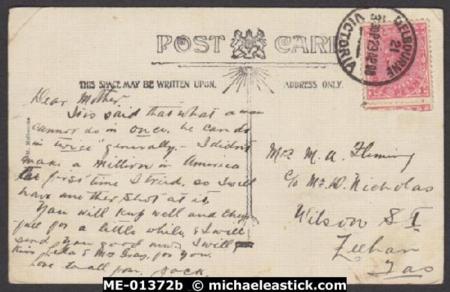 POST CARD
THIS SPACE MAY BE WRITTEN UPON.
ADDRESS ONLY.
MELBOURNE
21
VICTORIA
Dear Mother,
It is said that what a man
cannot do in once, he can do
in "twice" generally - I didn't
make a million in America
the first time I tried, so I will
have another shot at it
You will keep well and cheer-
full for a little while, & I will
send you good news I will
Kiss & Mrs for you
Love to all from Jack.
Mrs M. A. Fleming
c/o Mr. D. Nicholas
Wilson St
Zeehan
Tas
ME-01372b © michaeleastick.com